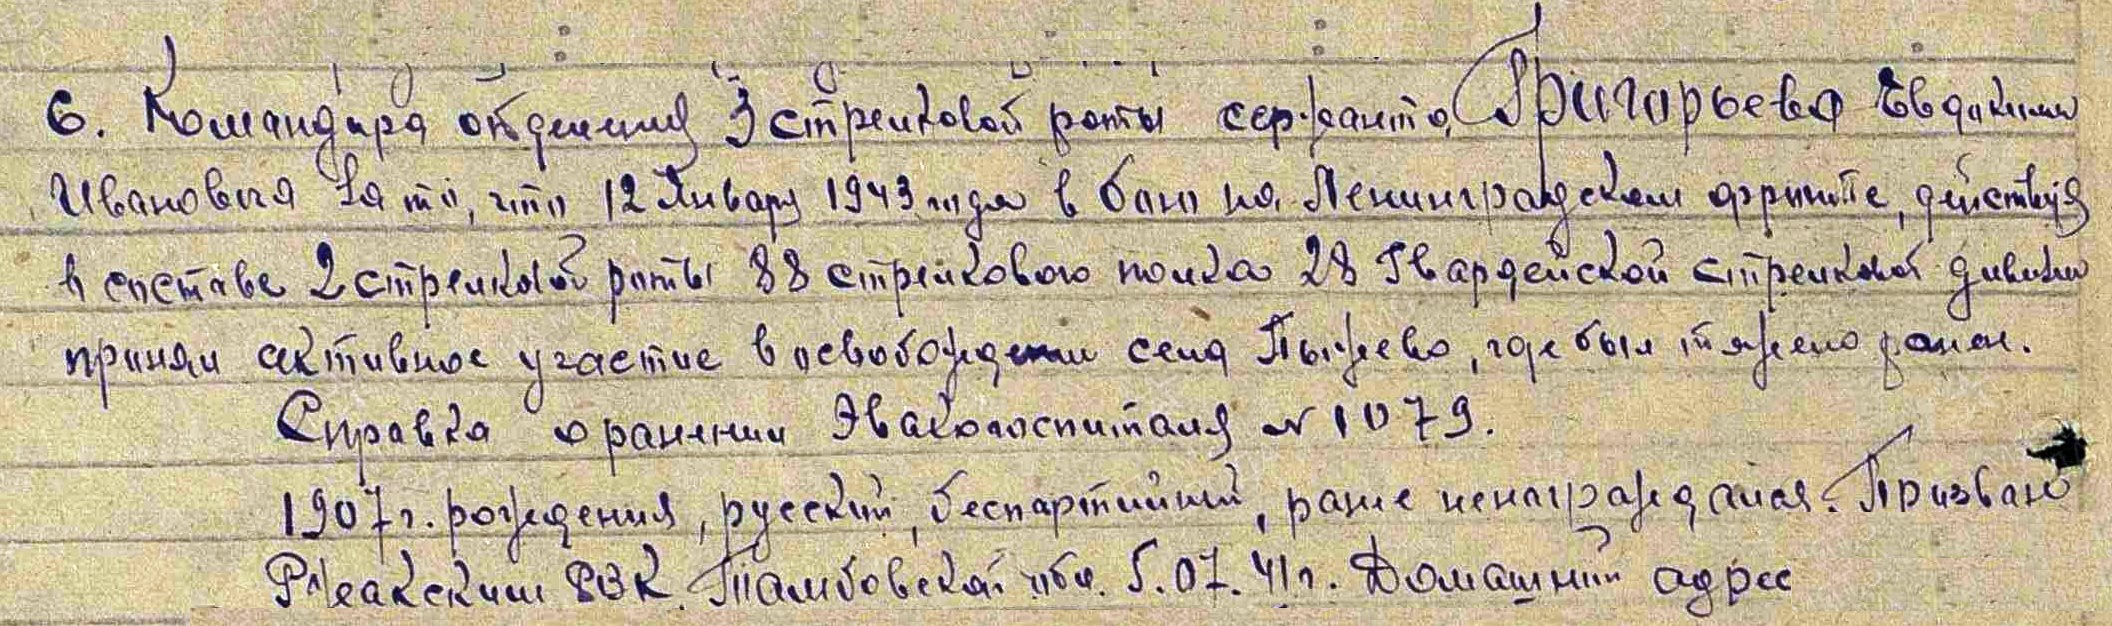 6. Командира отделения 3 стрелковой роты сержанта Григорьева Евдокима
Ивановича За то, что 12 Января 1943 года в бою на Ленинградском фронте, действуя
в составе 2 стрелковой роты 88 стрелкового полка 28 Гвардейской стрелковой дивизии
принял активное участие в освобождении села Пыжево, где был тяжело ранен.
Справка о ранении Эвакогоспиталя № 1079.
1907 г. рождения, русский, беспартийный, ранее ненаграждался. Призван
Ржакским РВК Тамбовской обл. 5.07.41 г. Домашний адрес